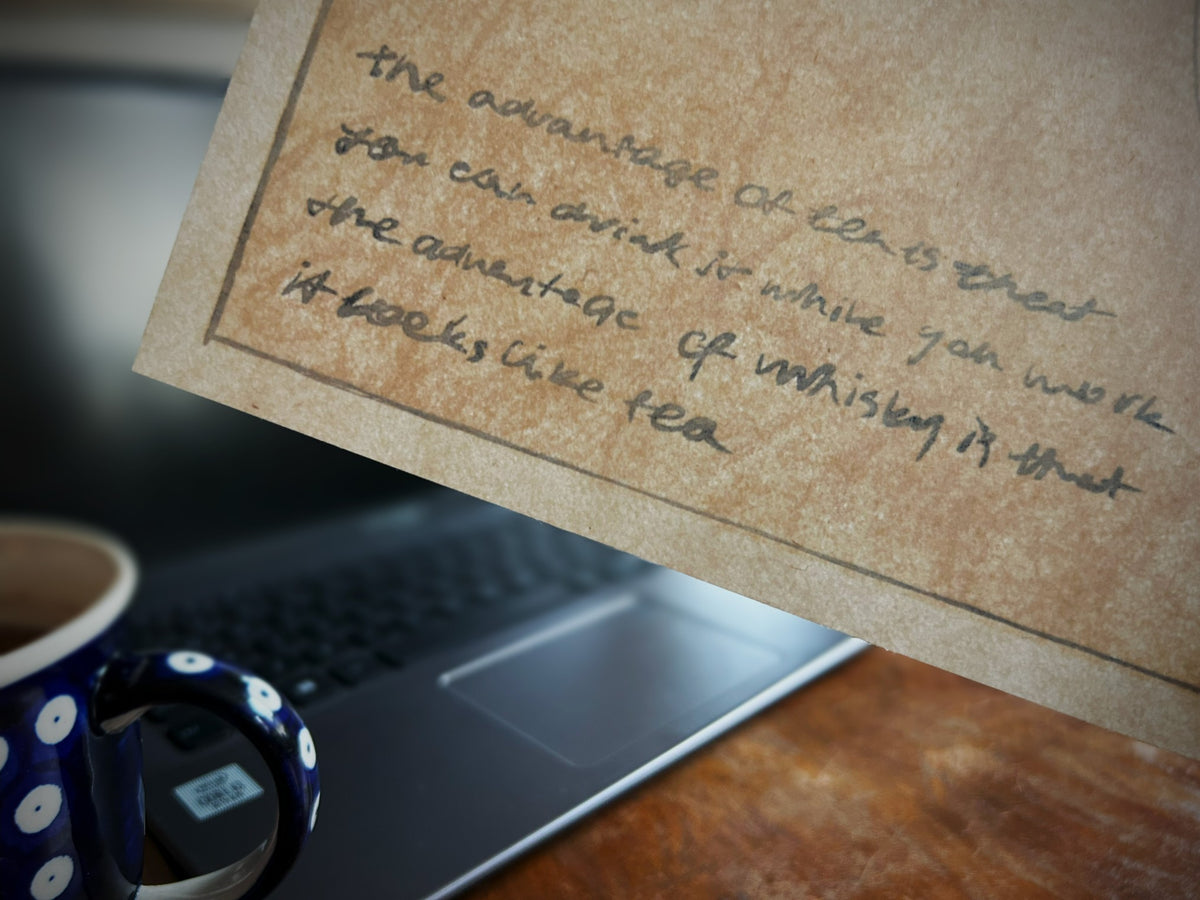 the advantage of tea is that
you can drink it while you work
the advantage of whisky is that
it looks like tea